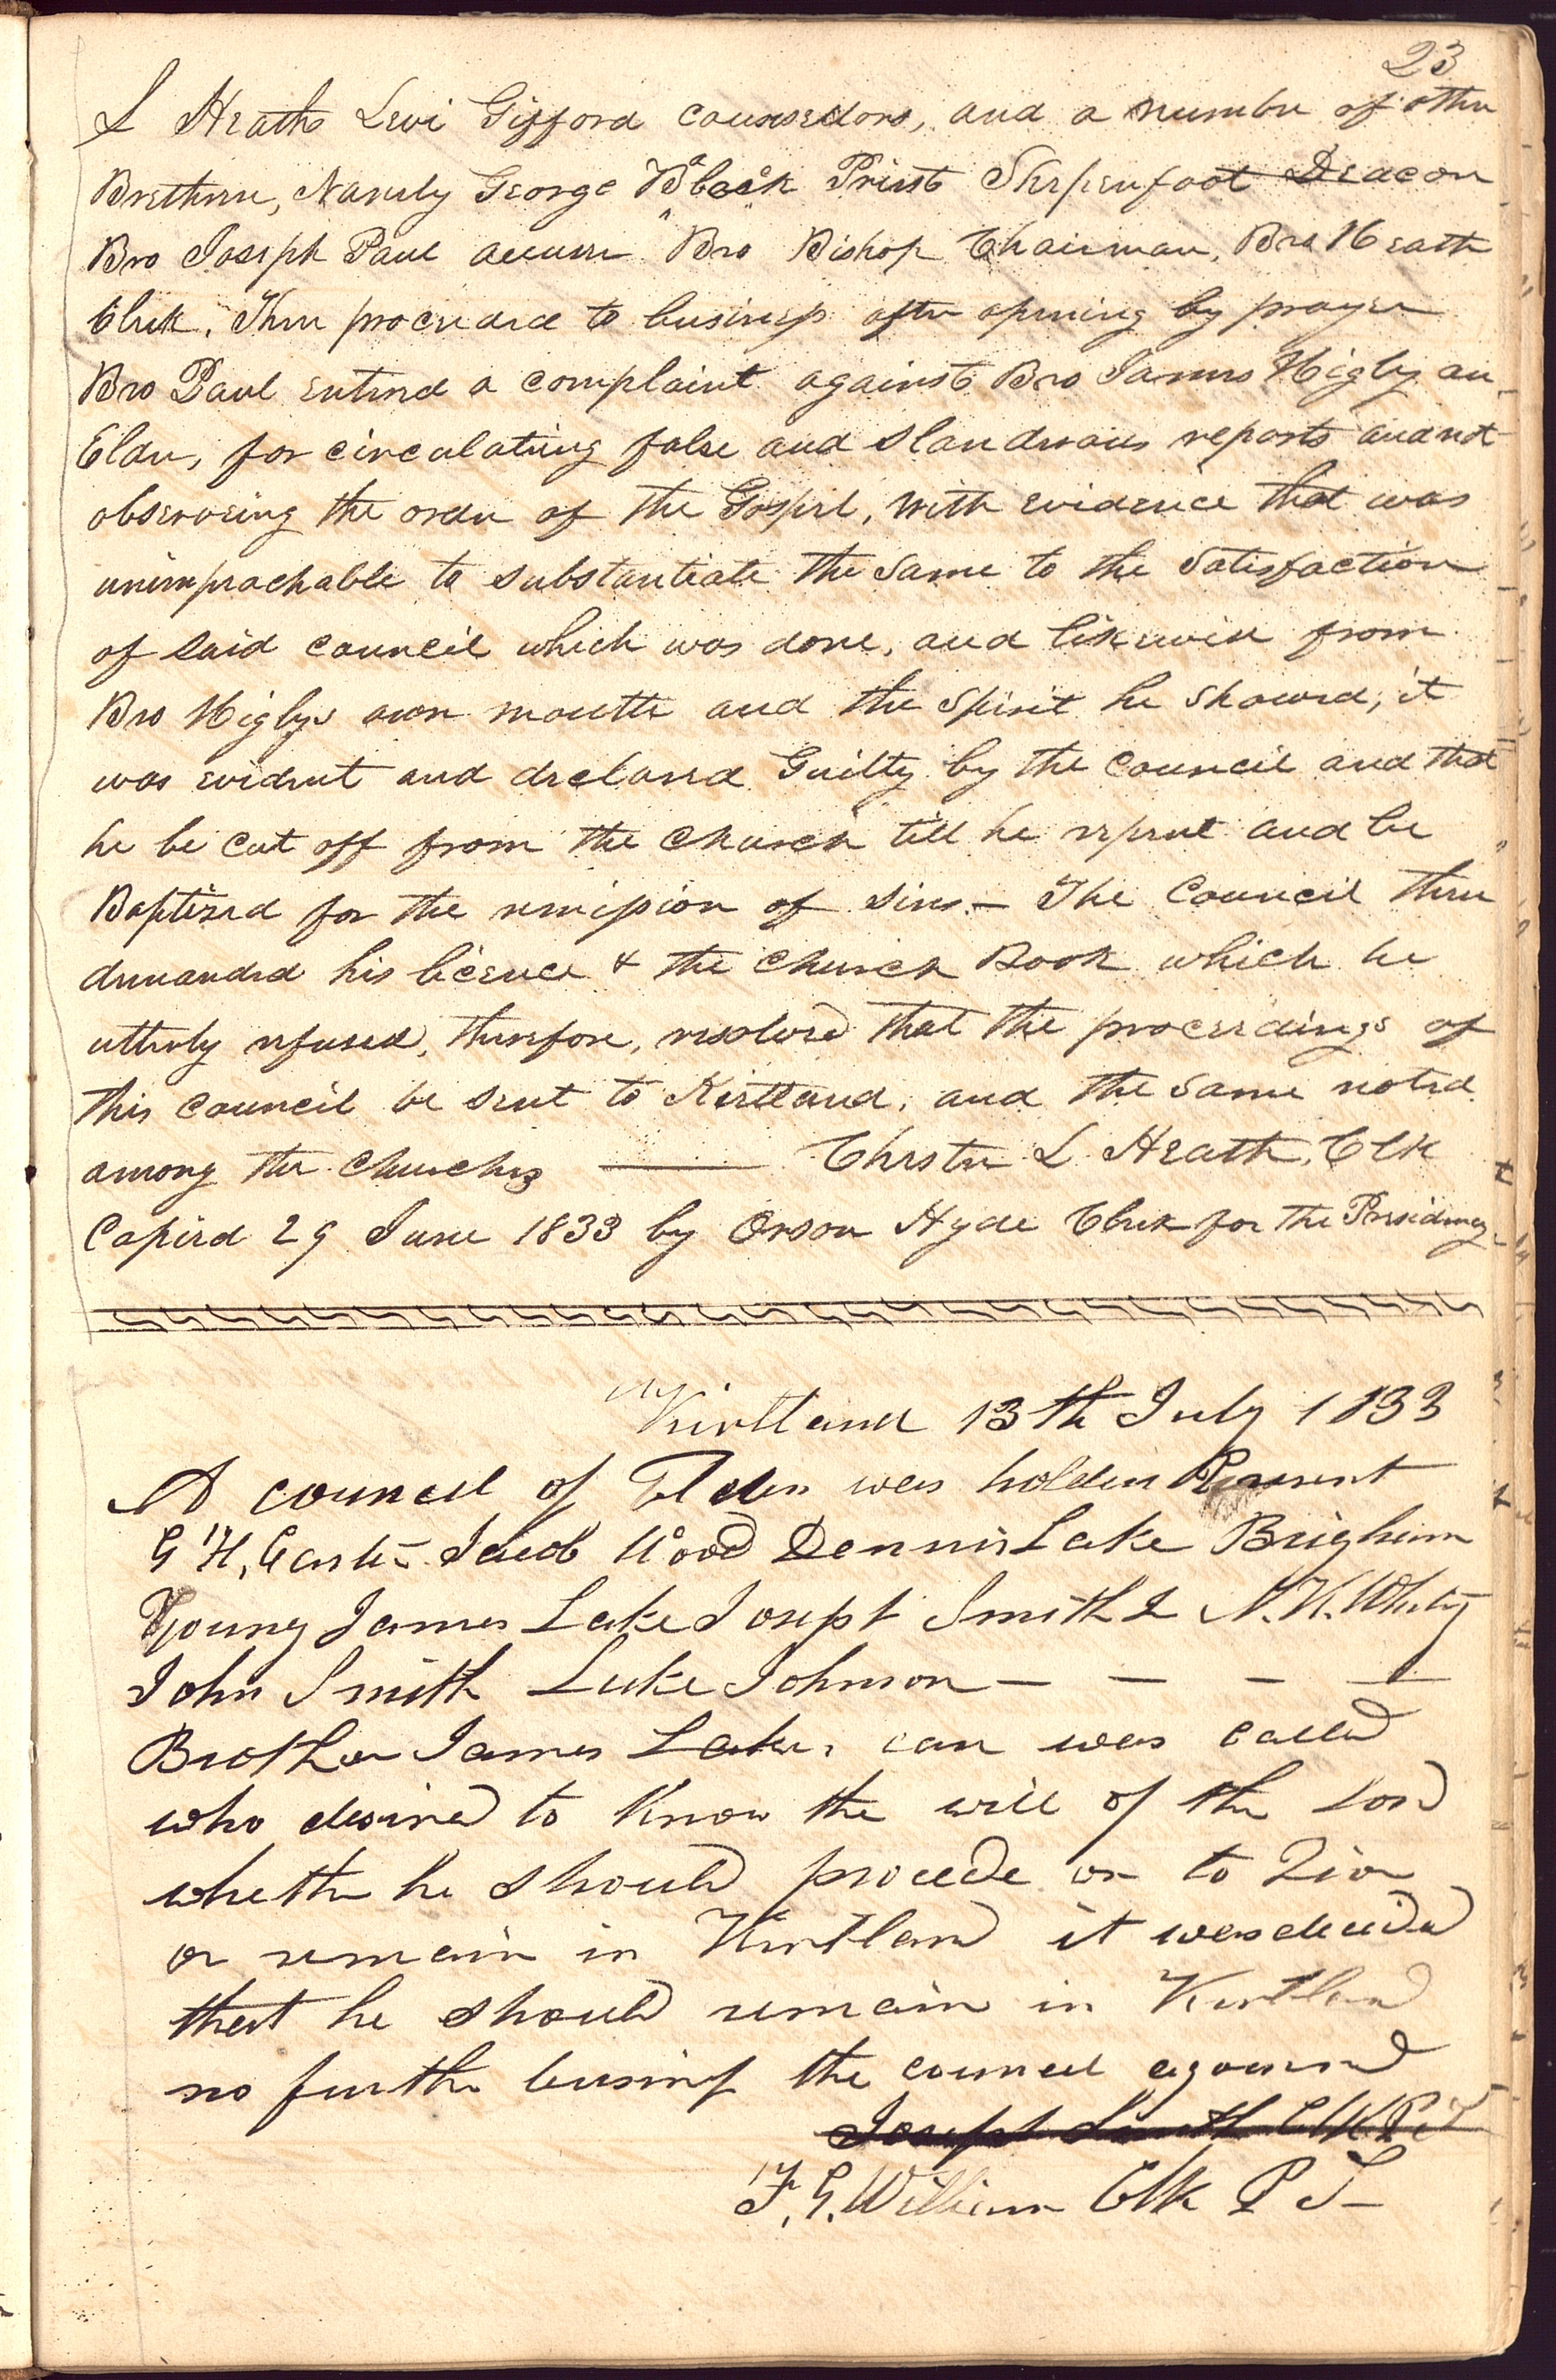 23
L Heath Levi Gifford counselors, and a number of other
Brethren, Namely George Black Priest Sherpenfoot Deacon
Bro Joseph Paul accuser Bro Bishop Chairman, Bro Heath
Clerk. Then proceeded to business after opening by prayer
Bro Paul entered a complaint against Bro James Higby an
Elder, for circulating false and slanderous reports and not
observeing the order of the Gospel, with evidence that was
unimpeachable to substantiate the same to the satisfaction
of said council which was done, and likewise from
Bro Higbys own mouth and the spirit he showed, it
was evident and declared Guilty by the council and that
he be cut off from the church till he repent and be
Baptized for the remission of sins — The Council then
demanded his licence & the church Book which he
utterly refused, therefore, resolved that the proceedings of
this council be sent to Kirtland, and the same noted
among the churches — Chester L Heath, Clk
Copied 29 June 1833 by Orson Hyde Clerk for the Presidency
Kirtland 13th July 1833
A council of Elders was holden Present
G H, Carter Jacob Wood Dennis Lake Brigham
Young James Lake Joseph Smith J N. K. Whitney
John Smith Luke Johnson — — — —
Brother James Lake, was called
who desired to know the will of the Lord
whether he should procede on to Zion
or remain in Kirtland it was decided
that he should remain in Kirtland
no further business the council ajourned
Joseph Smith Clk P T
F. G. Williams Clk P T